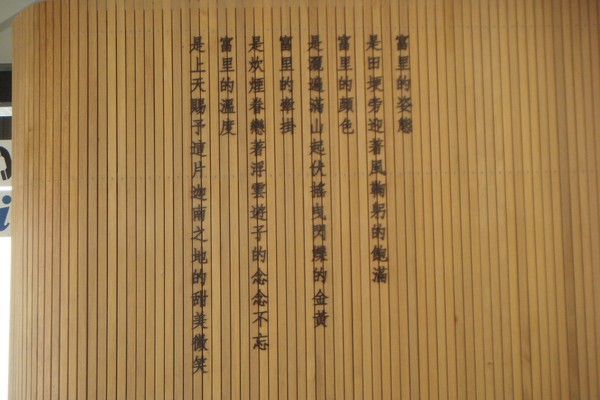 富里的姿態
是田埂旁迎著風鞠躬的飽滿
富里的顏色
是瀰漫滿山起伏搖曳閃爍的金黃
富里的牽掛
是炊煙眷戀著浮雲遊子的念念不忘
富里的溫度
是上天賜予這片迦南之地的甜美微笑
i